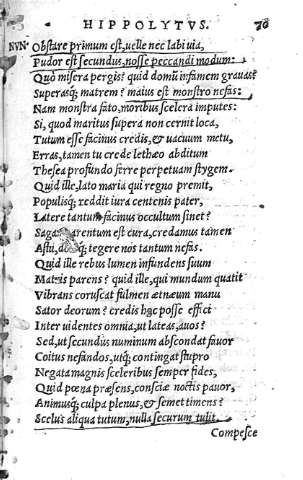 HIPPOLYTVS. 70
NVN Obstare primum est, uelle nec labi uia,
Pudor est secundus, nosse peccandi modum:
Quò misera pergis? quid domū infamem grauas?
Superasq; matrem? maius est monstro nefas:
Nam monstra fato, moribus scelera imputes:
Si, quod maritus supera non cernit loca,
Tutum esse facinus credis, & uacuum metu,
Erras, tamen tu crede lethæo abditum
Thesea profundo ferre perpetuam stygem.
Quid ille, lato maria qui regno premit,
Populisq; reddit iura centenis pater,
Latere tantum facinus occultum sinet?
Sagax parentum est cura, credamus tamen
Astu, tegere nos tantum nefas.
Quid ille rebus lumen infundens suum
Matris parens? quid ille, qui mundum quatit
Vibrans coruscat fulmen ætnæum manu
Sator deorum? credis hoc posse effici
Inter uidentes omnia, ut lateas, auos?
Sed, ut secundus numinum abscondat fauor
Coitus nefandos, utq; contingat stupro
Negata magnis sceleribus semper fides,
Quid pœna præsens, consciæ noctis pauor,
Animusq; culpa plenus, & semet timens?
Scelus aliqua tutum, nulla securum tulit.
Compesce